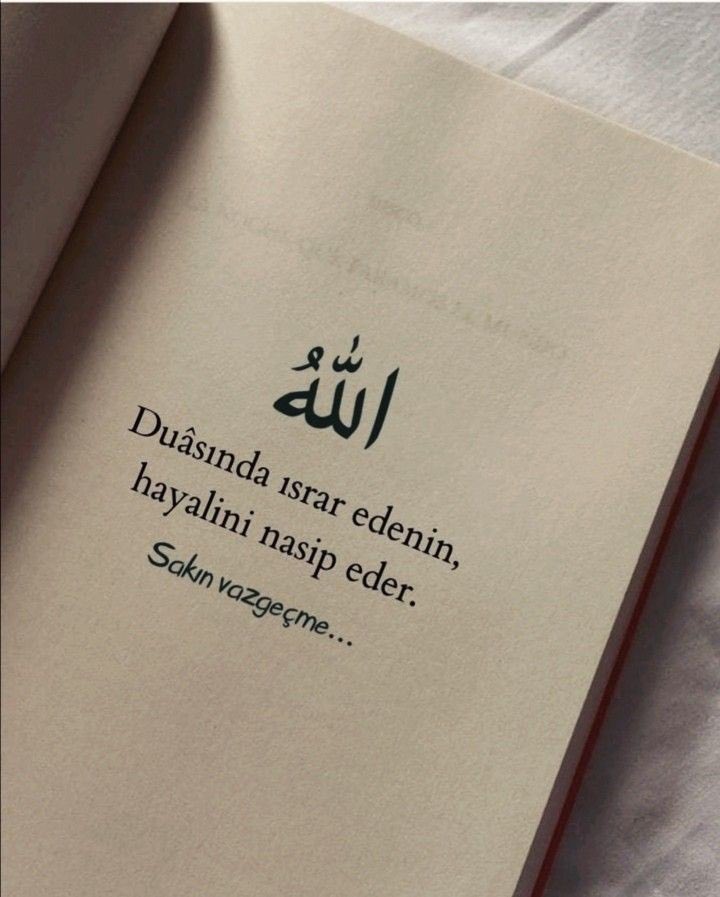 اللّٰهُ
Duâsında ısrar edenin,
hayalini nasip eder.
Sakın vazgeçme...